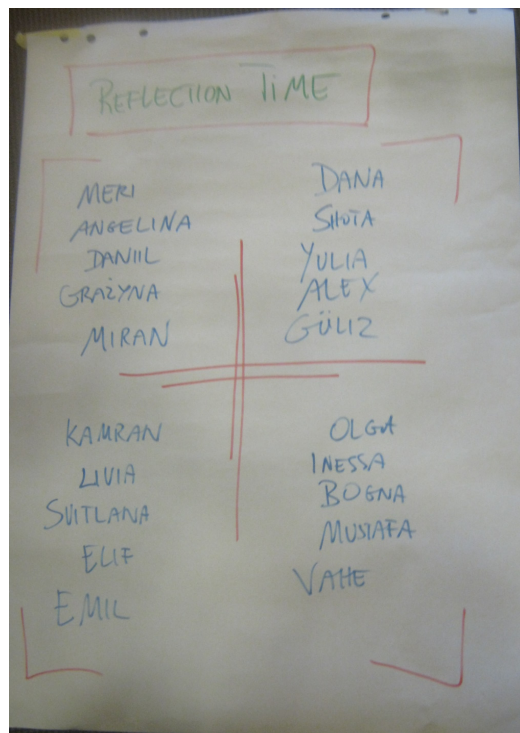 REFLECTION TIME
MERI
ANGELINA
DANIIL
GRAŻYNA
MIRAN
DANA
SHOTA
YULIA
ALEX
GÜLIZ
KAMRAN
LIVIA
SVITLANA
ELIF
EMIL
OLGA
INESSA
BOGNA
MUSTAFA
VAHE